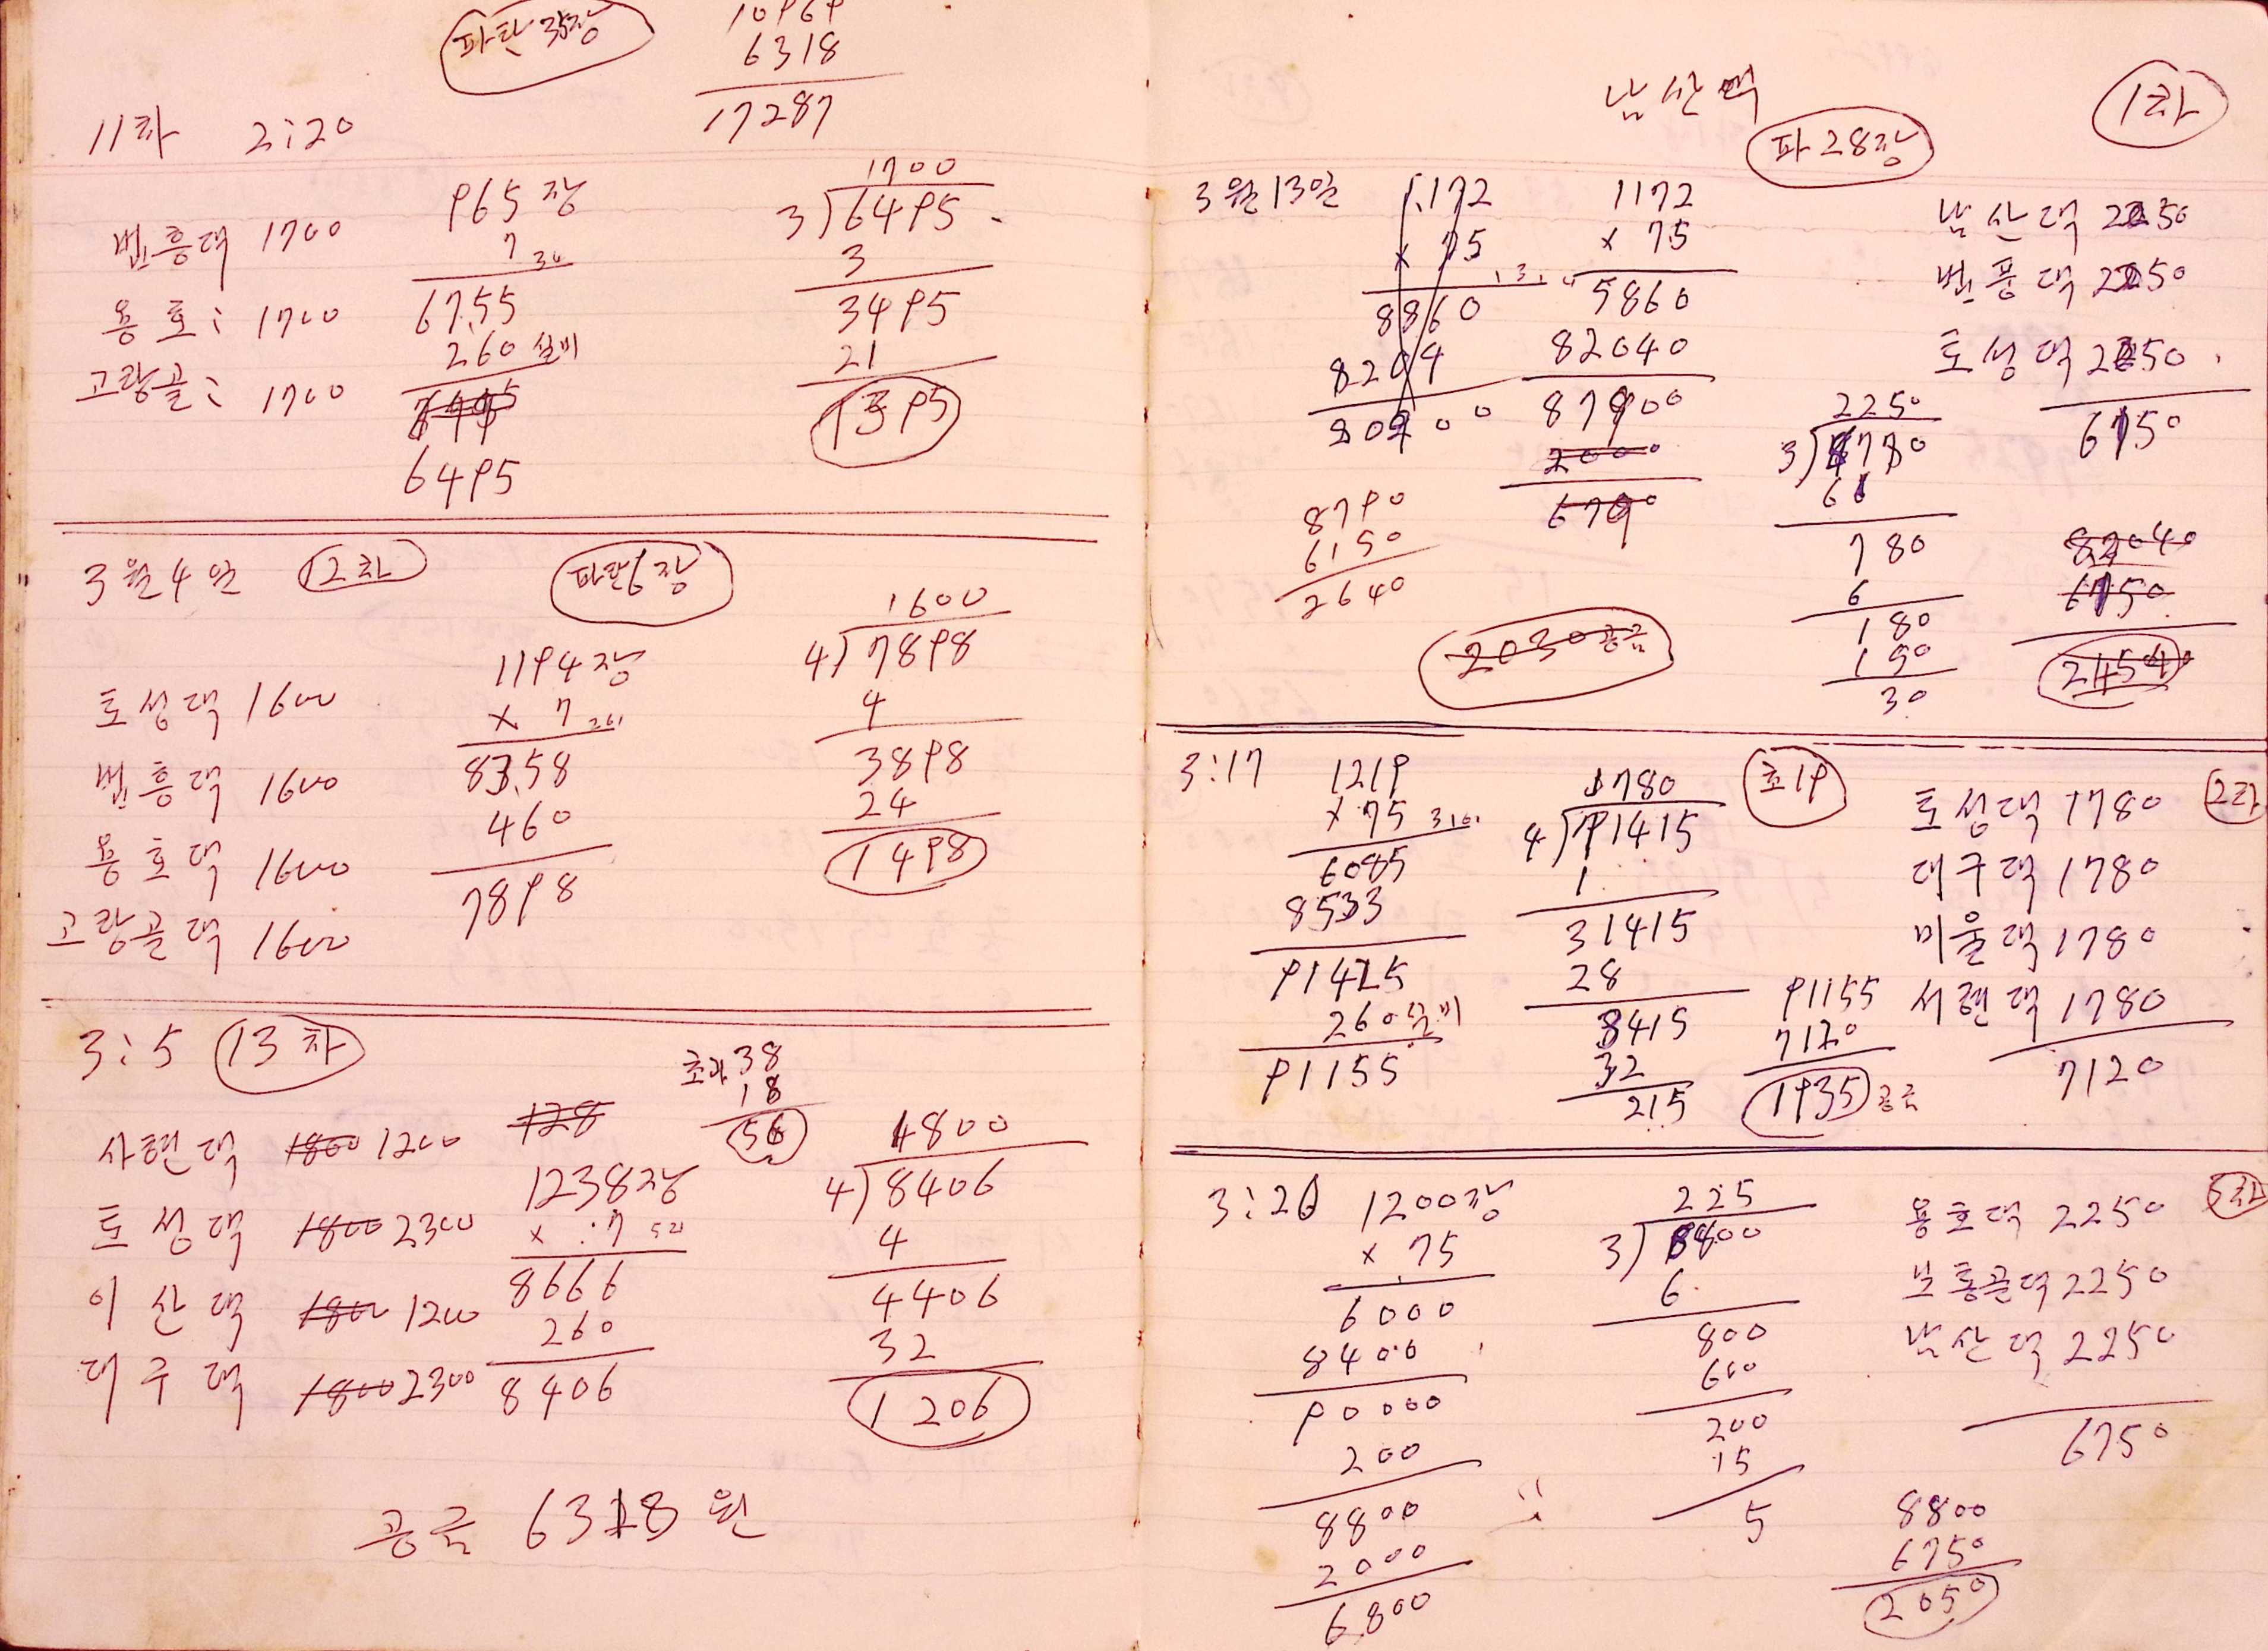 파탄 35장
10969
6318
17287
11차 2:20
965장
7 30
67.55
260 실비
6495
번흥댁 1700
용호: 1700
고랑골: 1700
1700
3)6495
3
3495
21
1395
3월 4일 12차 파탄6장
1194장
x 7
83.58
460
7898
토성댁 1600
번흥댁 1600
용호댁 1600
고랑골댁 1600
1600
4)7898
4
3898
24
1498
3:5 13차
초과 38
18
56
사련댁 1800 1200
토성댁 1800 2300
이산댁 1800 1200
대구댁 1800 2300
128
1238장
x 7
8666
260
8406
1800
4)8406
4
4406
32
1206
공금 6318원
남산댁
파 28장
1차
3월 13일
1172
x 75
8860
8204
1172
x 75
5860
82040
87900
2000
6790
8790
6150
2640
2030 공금
남산댁 2250
번풍댁 2250
토성댁 2250
6750
2250
3)6780
6
780
6
180
150
30
82040
6750
3:17
1219
x 75
6085
8533
91425
260 실비
91155
1780
4)91415
31415
28
3415
32
215
초19
2차
토성댁 1780
대구댁 1780
미울댁 1780
서련댁 1780
7120
91155
7120
1935 공금
1200장
x 75
6000
8400
90000
200
8800
2000
6800
225
6
800
600
200
15
5
용호댁 2250
보통골댁 2250
남산댁 2250
6750
8800
6750
2050